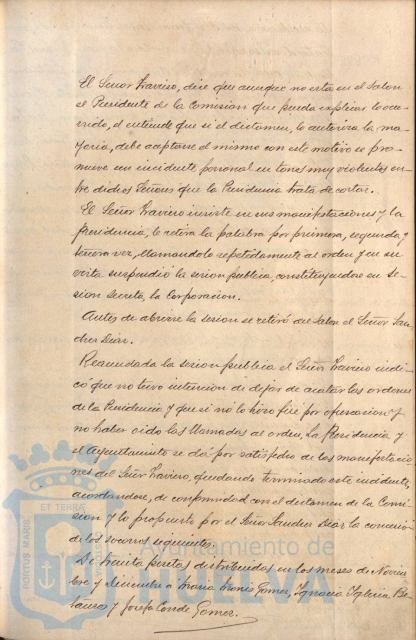 El Señor Traviso, dice que aunque no esta en el Salon
el Presidente de la Comision que pueda esplicar lo ocu-
rrido, el entiende que si el dictamen, lo autoriza la ma-
yoria, debe aceptarse el mismo con este motivo se pro-
mueve un incidente personal en tonos muy violentos en-
tre dichos Señores que la Presidencia trata de cortar.
El Señor Traviso insiste en sus manifestaciones y la
Presidencia, le retira la palabra por primera, segunda y
tercera vez, llamandolo repetidamente al orden y en su
vista suspendió la sesion publica, constituyendose en Se-
sion Secreta, la Corporacion.
Antes de abrirse la sesion se retiró del Salon el Señor San-
chez Diaz.
Reanudada la sesion publica el Señor Traviso indi-
có que no tuvo intencion de dejar de acatar las ordenes
de la Presidencia y que si no lo hizo fué por ofuscacion y
no haber oido las llamadas al orden, la Presidencia y
el Ayuntamiento se da por satisfecho de las manifestacio-
nes del Señor Traviso, quedando terminado este incidente,
acordandose, de conformidad con el dictamen de la Comi-
sion y lo propuesto por el Señor Sanchez Diaz la concesion
de los socorros siguientes:
De treinta pesetas distribuidos en los meses de Noviem-
bre y diciembre a Maria Gomez, Ignacia Iglesia
y Josefa Conde Gomez.
PORTUS MARIS ET TERRÆ
Ayuntamiento de
HUELVA